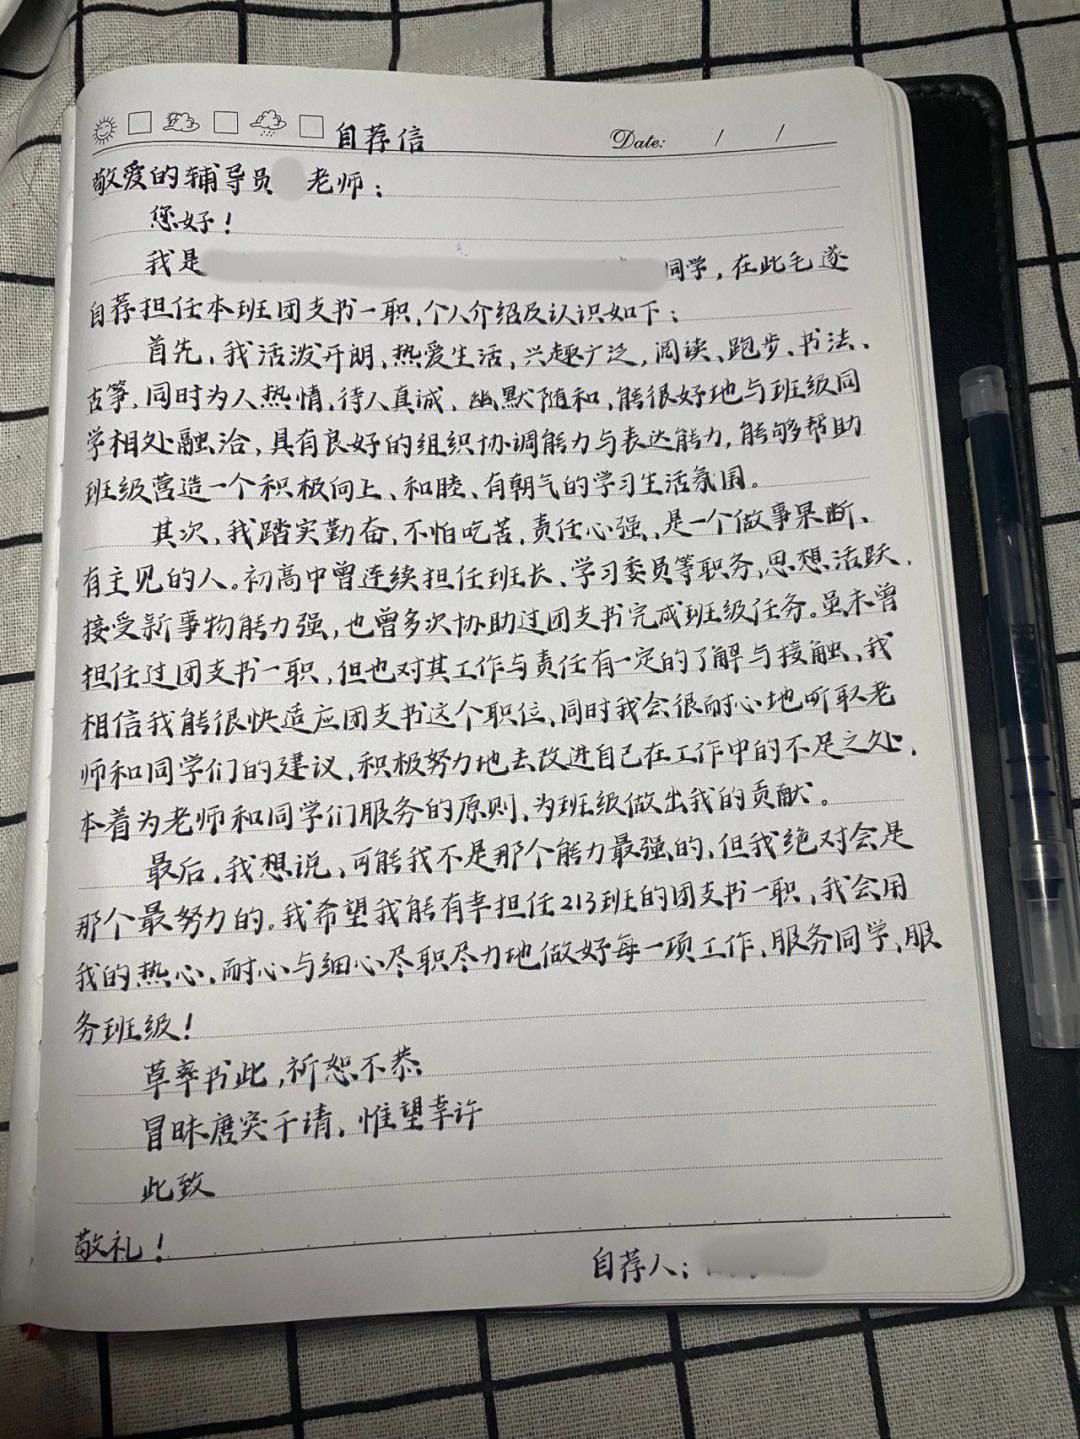 自荐信
Date: / /
敬爱的辅导员 老师：
您好！
我是 同学，在此毛遂
自荐担任本班团支书一职，个人介绍及认识如下：
首先，我活泼开朗，热爱生活，兴趣广泛，阅读、跑步、书法、
古筝，同时为人热情，待人真诚，幽默随和，能很好地与班级同
学相处融洽，具有良好的组织协调能力与表达能力，能够帮助
班级营造一个积极向上、和睦、有朝气的学习生活氛围。
其次，我踏实勤奋，不怕吃苦，责任心强，是一个做事果断、
有主见的人。初高中曾连续担任班长、学习委员等职务，思想活跃，
接受新事物能力强，也曾多次协助过团支书完成班级任务。虽未曾
担任过团支书一职，但也对其工作与责任有一定的了解与接触，我
相信我能很快适应团支书这个职位，同时我会很耐心地听取老
师和同学们的建议，积极努力地去改进自己在工作中的不足之处，
本着为老师和同学们服务的原则，为班级做出我的贡献。
最后，我想说，可能我不是那个能力最强的，但我绝对会是
那个最努力的。我希望我能有幸担任213班的团支书一职，我会用
我的热心，耐心与细心尽职尽力地做好每一项工作，服务同学，服
务班级！
草率书此，祈恕不恭
冒昧唐突干请，惟望幸许
此致
敬礼！
自荐人：